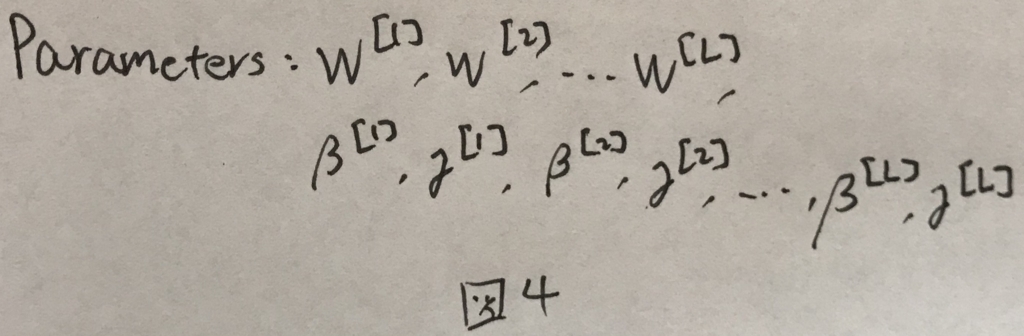 Parameters: W^[1], W^[2], ... W^[L],
β^[1], γ^[1], β^[2], γ^[2], ..., β^[L], γ^[L]
図4